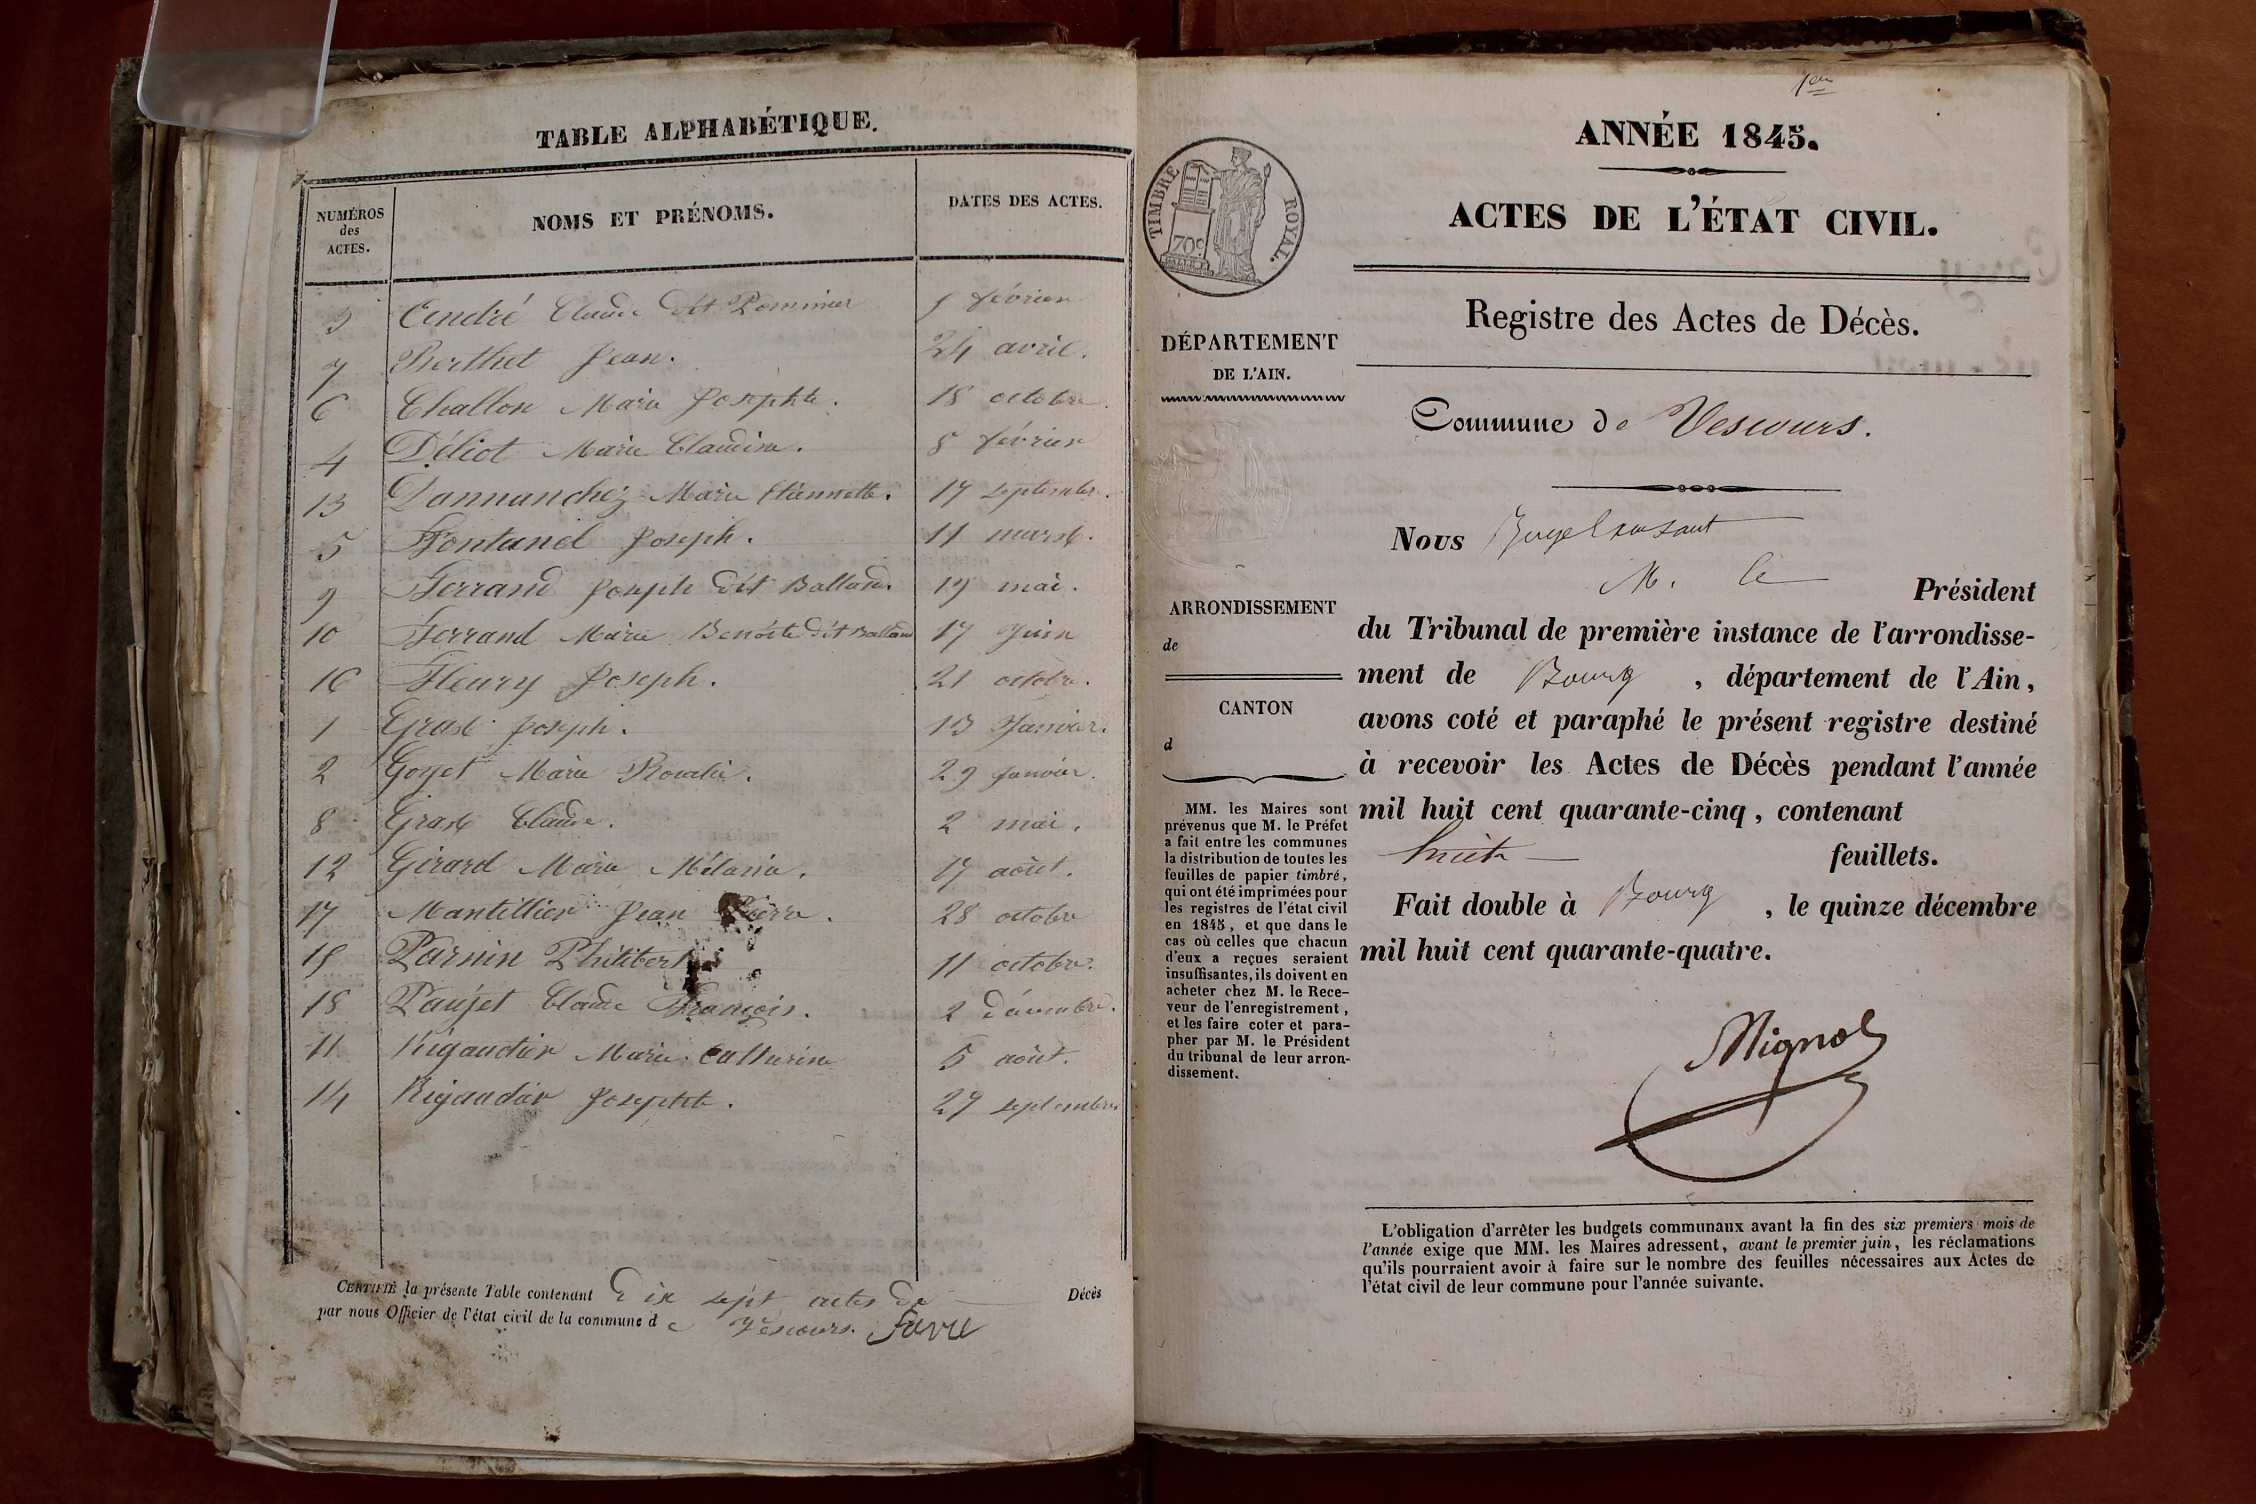 TABLE ALPHABÉTIQUE.
NUMÉROS des ACTES. NOMS ET PRÉNOMS. DATES DES ACTES.
3 André Claude dit Pommier 5 février
7 Berthet Jean. 24 avril.
6 Challon Marie Josephte. 18 octobre.
4 Déliot Marie Claudine. 8 février
13 Dannanchez Marie Etiennette. 17 septembre.
5 Fontanel Joseph. 11 mars.
9 Ferrand Joseph dit Balland. 19 mai.
10 Ferrand Marie Benoîte dit Balland 17 Juin
16 Fleury Joseph. 21 octobre.
1 Gras Joseph. 13 Janvier.
2 Goyet Marie Rosalie. 29 Janvier.
8 Gras Claude. 2 mai.
12 Girard Marie Mélania. 17 août.
17 Mantillier Jean Pierre. 28 octobre
15 Parnin Philibert 11 octobre.
18 Paujet Claude François. 2 Décembre.
11 Rigaudier Marie Catherine 5 août.
14 Rigaudier Josephte. 29 septembre
CERTIFIÉ la présente Table contenant Dix sept actes de Décès
par nous Officier de l'état civil de la commune de Vescours. Favre
1er
ANNÉE 1845.
ACTES DE L'ÉTAT CIVIL.
TIMBRE ROYAL.
70c
Registre des Actes de Décès.
DÉPARTEMENT
DE L'AIN.
Commune de Vescours.
ARRONDISSEMENT
de
CANTON
d
MM. les Maires sont
prévenus que M. le Préfet
a fait entre les communes
la distribution de toutes les
feuilles de papier timbré,
qui ont été imprimées pour
les registres de l'état civil
en 1845, et que dans le
cas où celles que chacun
d'eux a reçues seraient
insuffisantes, ils doivent en
acheter chez M. le Rece-
veur de l'enregistrement,
et les faire coter et para-
pher par M. le Président
du tribunal de leur arron-
dissement.
Nous
M. le Président
du Tribunal de première instance de l'arrondisse-
ment de Bourg, département de l'Ain,
avons coté et paraphé le présent registre destiné
à recevoir les Actes de Décès pendant l'année
mil huit cent quarante-cinq, contenant
huit feuillets.
Fait double à Bourg, le quinze décembre
mil huit cent quarante-quatre.
Mignot
L'obligation d'arrêter les budgets communaux avant la fin des six premiers mois de
l'année exige que MM. les Maires adressent, avant le premier juin, les réclamations
qu'ils pourraient avoir à faire sur le nombre des feuilles nécessaires aux Actes de
l'état civil de leur commune pour l'année suivante.